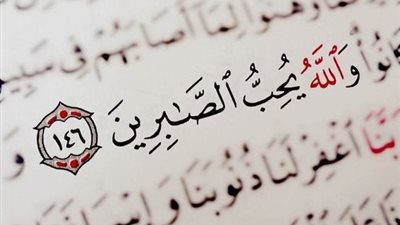 وَهَنُوا۟ لِمَآ أَصَابَهُمْ فِى سَبِيلِ
وَٱللَّهُ يُحِبُّ ٱلصَّـٰبِرِينَ ١٤٦ وَ
رَبَّنَا ٱغْفِرْ لَنَا ذُنُوبَنَا وَإِسْرَافَنَا